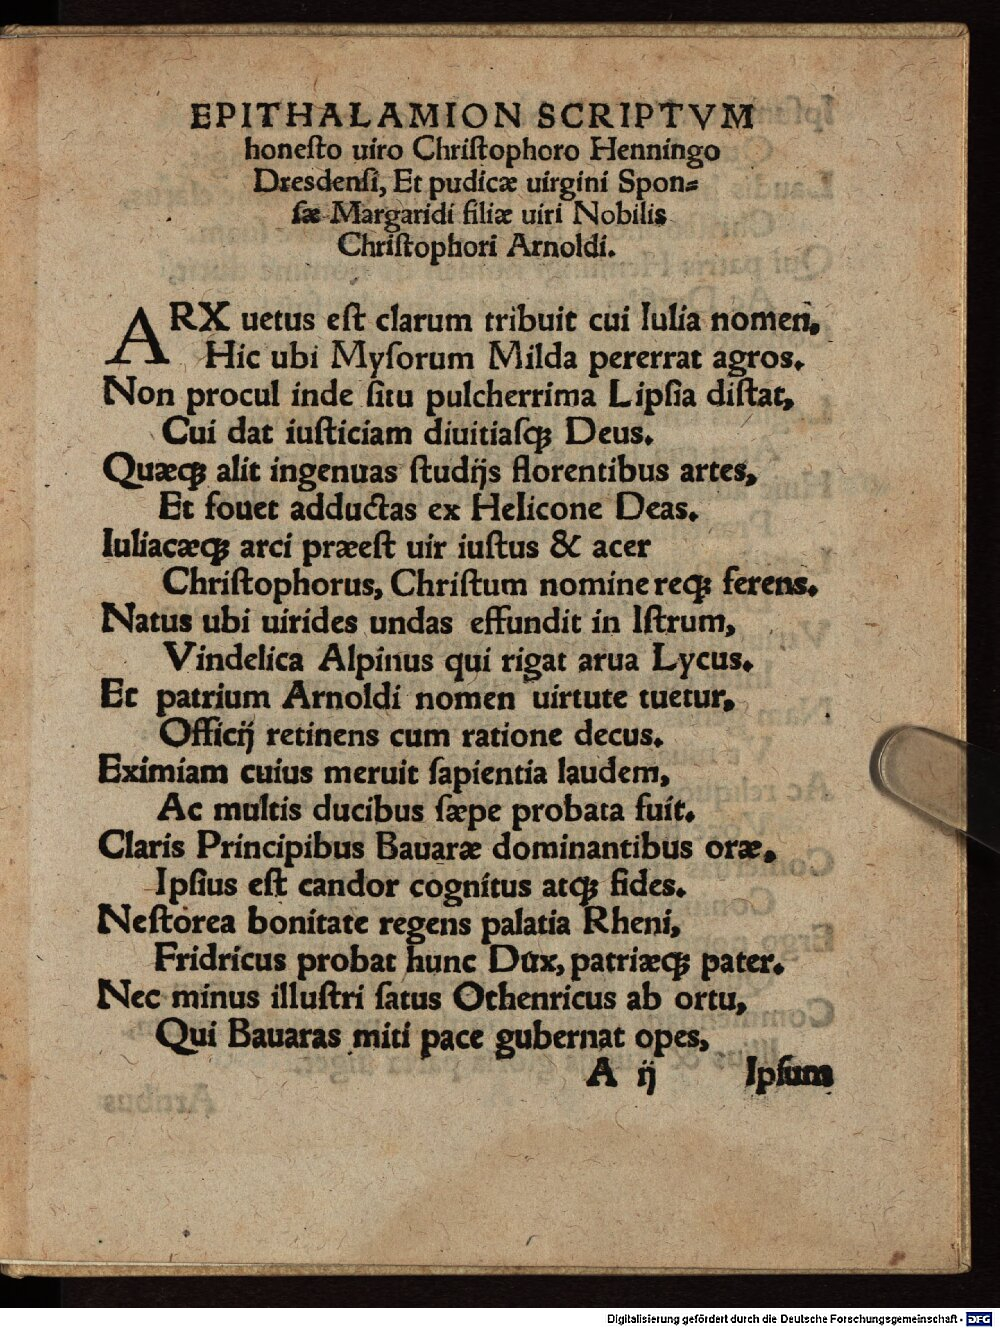 EPITHALAMION SCRIPTVM
honeſto uiro Chriſtophoro Henningo
Dresdenſi, Et pudicæ uirgini Spon⸗
ſæ Margaridi filiæ uiri Nobilis
Chriſtophori Arnoldi.
ARX uetus eſt clarum tribuit cui Iulia nomen,
Hic ubi Myſorum Milda pererrat agros.
Non procul inde ſitu pulcherrima Lipſia diſtat,
Cui dat iuſticiam diuitiasꝙ Deus.
Quæꝙ alit ingenuas ſtudijs florentibus artes,
Et fouet adductas ex Helicone Deas.
Iuliacæꝙ arci præeſt uir iuſtus & acer
Chriſtophorus, Chriſtum nomine reꝙ ferens.
Natus ubi uirides undas effundit in Iſtrum,
Vindelica Alpinus qui rigat arua Lycus.
Et patrium Arnoldi nomen uirtute tuetur,
Officij retinens cum ratione decus.
Eximiam cuius meruit ſapientia laudem,
Ac multis ducibus ſæpe probata fuit.
Claris Principibus Bauaræ dominantibus oræ,
Ipſius eſt candor cognitus atꝙ fides.
Neſtorea bonitate regens palatia Rheni,
Fridricus probat hunc Dux, patriæꝙ pater.
Nec minus illuſtri ſatus Othenricus ab ortu,
Qui Bauaras miti pace gubernat opes,
A ij Ipſum
Digitalisierung gefördert durch die Deutsche Forschungsgemeinschaft - DFG